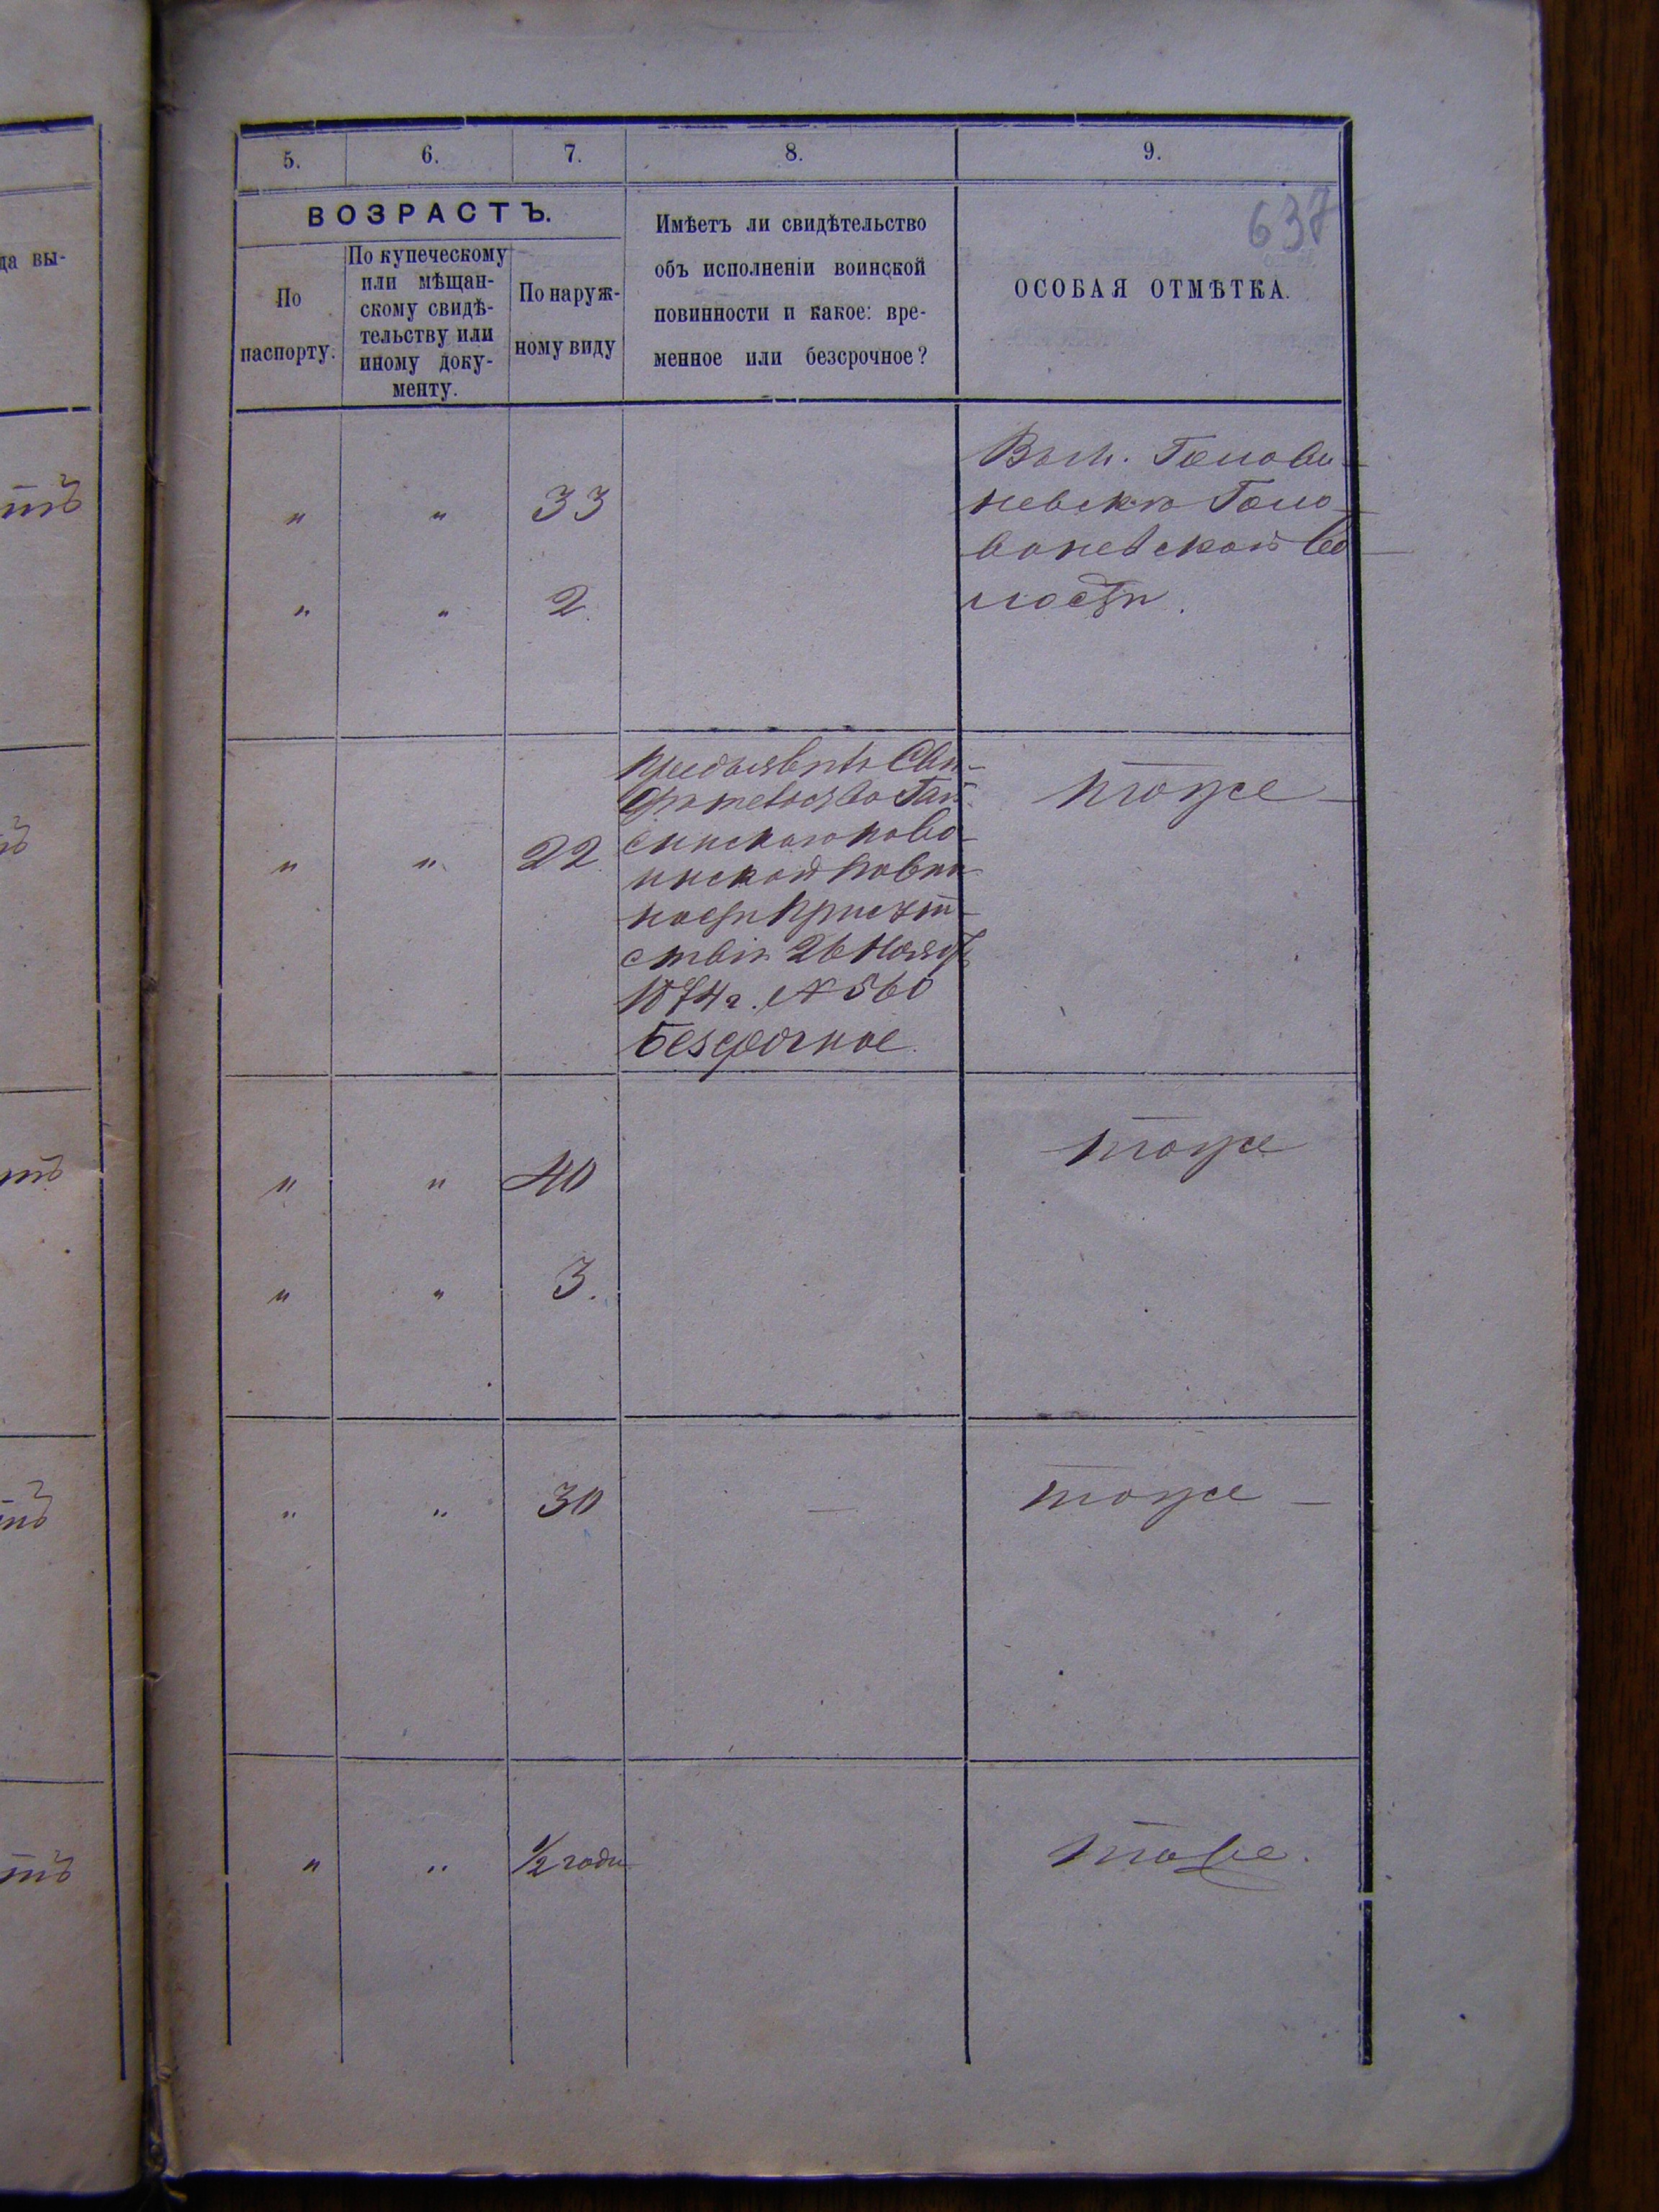 5. 6. 7. 8. 9.
637
ВОЗРАСТЪ.
По
паспорту.
По купеческому
или мѣщан-
скому свидѣ-
тельству или
иному доку-
менту.
По наруж-
ному виду
Имѣетъ ли свидѣтельство
объ исполненіи воинской
повинности и какое: вре-
менное или безсрочное?
ОСОБАЯ ОТМѢТКА.
да вы-
" " 33
" " 2
Голо
ваневской во
лости.
" " 22
Предъявилъ Сви-
дѣтельство Гай-
синскаго по во-
инской повин
ности присут
ствія 26 Ноября
1874 г. № 560
безсрочное.
тоже
" " 40
" " 3.
тоже
" " 30 —
тоже —
" " 1/2 года
тоже.